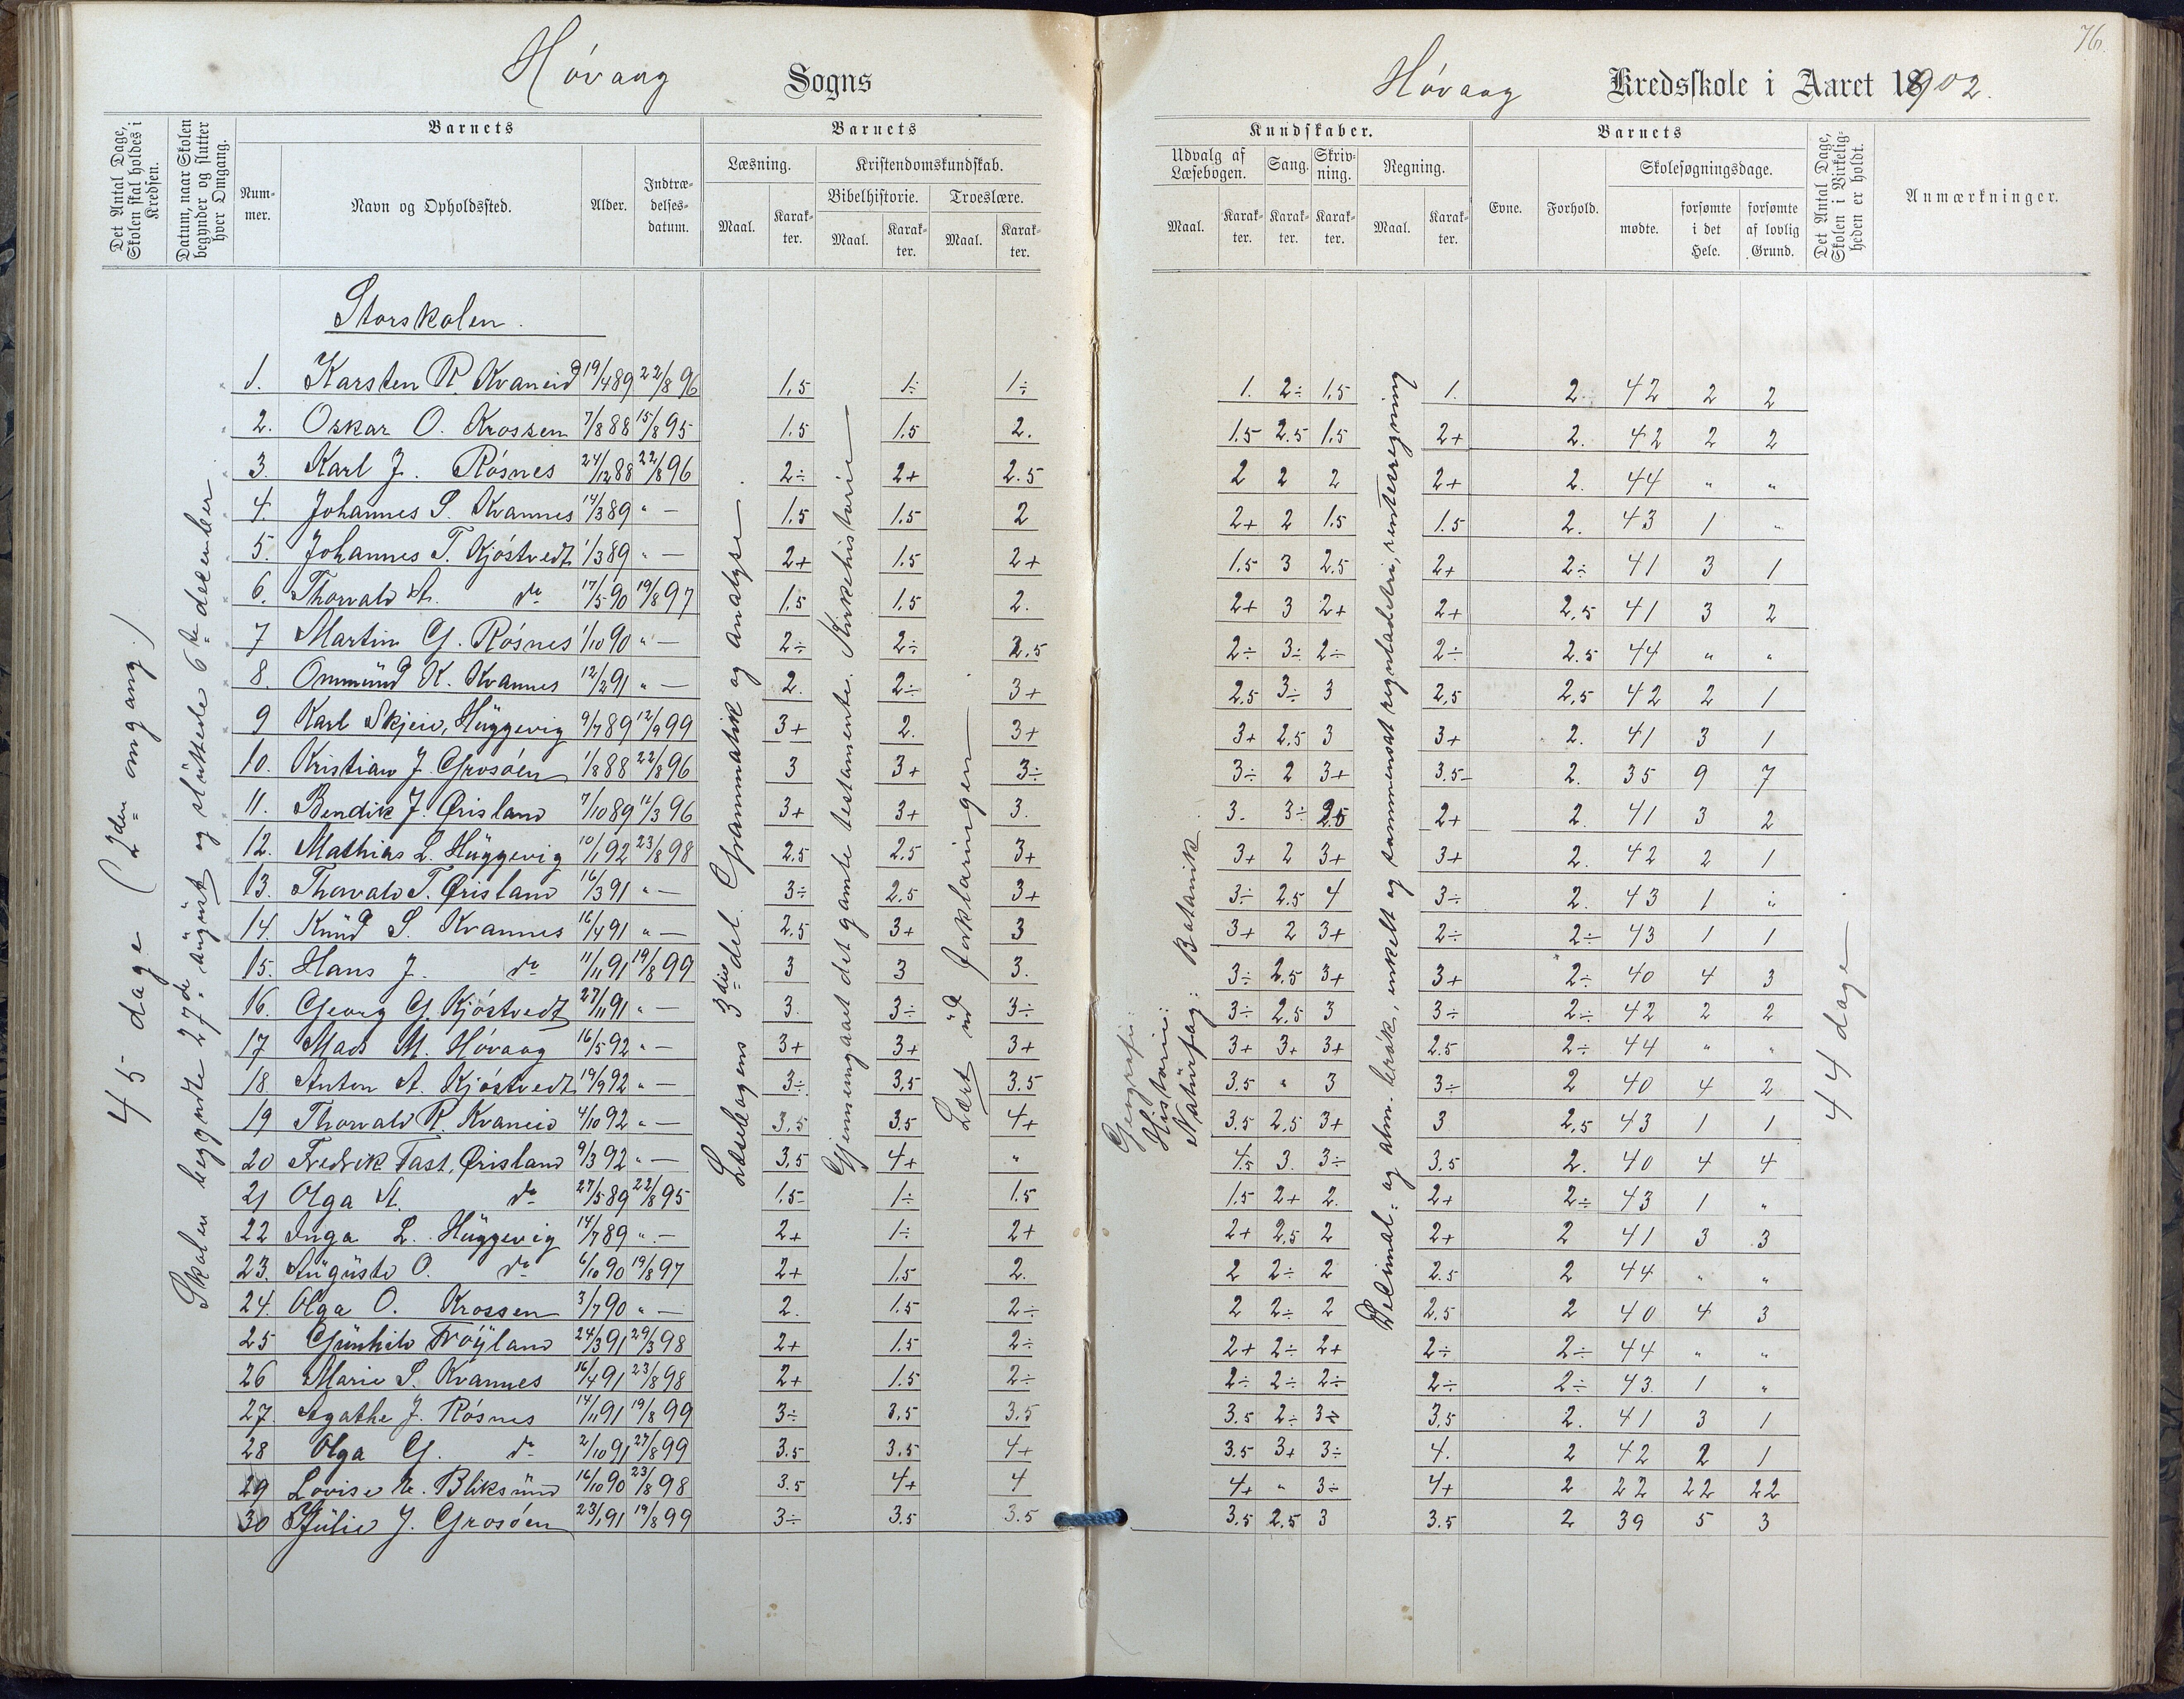 76.
Høvaag Sogns
Høvaag Kredsskole i Aaret 1902.
Det Antal Dage, Skolen skal holdes i Kredsen.
Datum, naar Skolen begynder og slutter hver Omgang.
Barnets
Nummer.
Navn og Opholdssted.
Alder.
Indtrædelsesdatum.
Barnets
Læsning.
Maal. Karakter.
Kristendomskundskab.
Bibelhistorie.
Maal. Karakter.
Troeslære.
Maal. Karakter.
Kundskaber.
Udvalg af Læsebogen.
Maal. Karakter.
Sang.
Karakter.
Skrivning.
Karakter.
Regning.
Maal. Karakter.
Barnets
Evne.
Forhold.
Skolesøgningsdage.
mødte.
forsømte i det Hele.
forsømte af lovlig Grund.
Det Antal Dage, Skolen i Virkeligheden er holdt.
Anmærkninger.
45 dage (2den omgang.)
Skolen begyndte 27de august og sluttede 6te december
Læsebogens 3die del. Grammatik og analyse.
Gjennemgaaet det gamle testamente. Kirkehistorie
Lært ud forklaringen
Geografi:
Historie:
Naturfag: Botanik.
Decimal- og alm. brøk, enkelt og sammensat reguladetri, renteregning
44 dage
Storskolen.
1. Karsten R. Kvaneid 19/4 89 22/8 96 1,5 1÷ 1÷ 1. 2÷ 1,5 1. 2 42 2 2
2. Oskar O. Krossen 7/8 88 15/8 95 1.5 1.5 2. 1.5 2.5 1.5 2+ 2. 42 2 2
3. Karl J. Røsnes 24/12 88 22/8 96 2÷ 2+ 2.5 2 2 2 2+ 2. 44 " "
4. Johannes S. Kvannes 14/3 89 " — 1.5 1.5 2 2+ 2 1.5 1.5 2. 43 1 "
5. Johannes T. Kjøstvedt 1/3 89 " — 2+ 1.5 2+ 1.5 3 2.5 2+ 2÷ 41 3 1
6. Thorvald A. do 17/5 90 19/8 97 1.5 1.5 2. 2+ 3 2+ 2+ 2.5 41 3 2
7 Martin G. Røsnes 1/10 90 " — 2÷ 2÷ 2.5 2÷ 3÷ 2÷ 2÷ 2.5 44 " "
8. Ommund K. Kvannes 12/2 91 " — 2. 2÷ 3+ 2.5 3÷ 3 2,5 2,5 42 2 1
9 Karl Skjeie, Huggevig 9/7 89 12/9 99 3+ 2. 3+ 3+ 2.5 3 3+ 2. 41 3 1
10. Kristian J. Grosøen 1/8 88 22/8 96 3 3+ 3÷ 3÷ 2 3+ 3.5 2. 35 9 7
11. Bendik J. Ørisland 7/10 89 12/3 96 3+ 3+ 3. 3. 3÷ 2.5 2+ 2. 41 3 2
12. Mathias L. Huggevig 10/1 92 23/8 98 2.5 2.5 3+ 3+ 2 3+ 3+ 2. 42 2 1
13. Thorvald T. Ørisland 16/3 91 " — 3÷ 2.5 3+ 3÷ 2.5 4 3÷ 2. 43 1 "
14. Knud S. Kvannes 16/4 91 " — 2.5 3+ 3 3+ 2 3+ 2÷ 2÷ 43 1 1
15. Hans J. do 11/11 91 19/8 99 3 3 3. 3÷ 2.5 3+ 3+ 2÷ 40 4 3
16. Georg G. Kjøstvedt 27/11 91 " — 3. 3÷ 3÷ 3÷ 2.5 3 3÷ 2÷ 42 2 2
17 Mads M. Høvaag 16/5 92 " — 3+ 3+ 3+ 3+ 3+ 3+ 2.5 2÷ 44 " "
18 Anton A. Kjøstvedt 19/9 92 " — 3÷ 3,5 3.5 3.5 " 3 3÷ 2 40 4 2
19 Thorvald R. Kvaneid 4/10 92 " — 3,5 3.5 4+ 3.5 2.5 3+ 3 2,5 43 1 1
20 Fredrik Tast. Ørisland 9/3 92 " — 3,5 4+ " 4.5 3. 3÷ 3.5 2. 40 4 4
21 Olga A. do 27/5 89 22/8 95 1.5 1÷ 1.5 1.5 2+ 2. 2+ 2÷ 43 1 "
22 Inga L. Huggevig 14/7 89 " — 2+ 1÷ 2+ 2+ 2,5 2 2+ 2 41 3 3
23. Auguste O. do 6/10 90 19/8 97 2+ 1.5 2. 2 2÷ 2 2.5 2 44 " "
24. Olga O. Krossen 3/7 90 " — 2. 1.5 2÷ 2 2÷ 2 2,5 2 40 4 3
25 Gunhild Trøyland 24/3 91 29/3 98 2+ 1.5 2÷ 2+ 2÷ 2+ 2÷ 2÷ 44 " "
26 Marie S. Kvannes 16/4 91 23/8 98 2+ 1.5 2÷ 2÷ 2÷ 2÷ 2÷ 2÷ 43. 1 "
27. Agathe J. Røsnes 14/11 91 19/8 99 3÷ 3,5 3.5 3.5 2÷ 3÷ 3,5 2. 41 3 1
28 Olga G. do 2/10 91 27/8 99 3.5 3.5 4+ 3.5 3+ 3÷ 4. 2 42 2 1
29 Lovise A. Bliksund 16/10 90 23/8 98 3.5 4+ 4 4+ " 3÷ 4+ 2 22 22 22
30 Julie J. Grosøen 23/1 91 19/8 99 3÷ 3.5 3.5 3.5 2.5 3 3.5 2 39 5 3